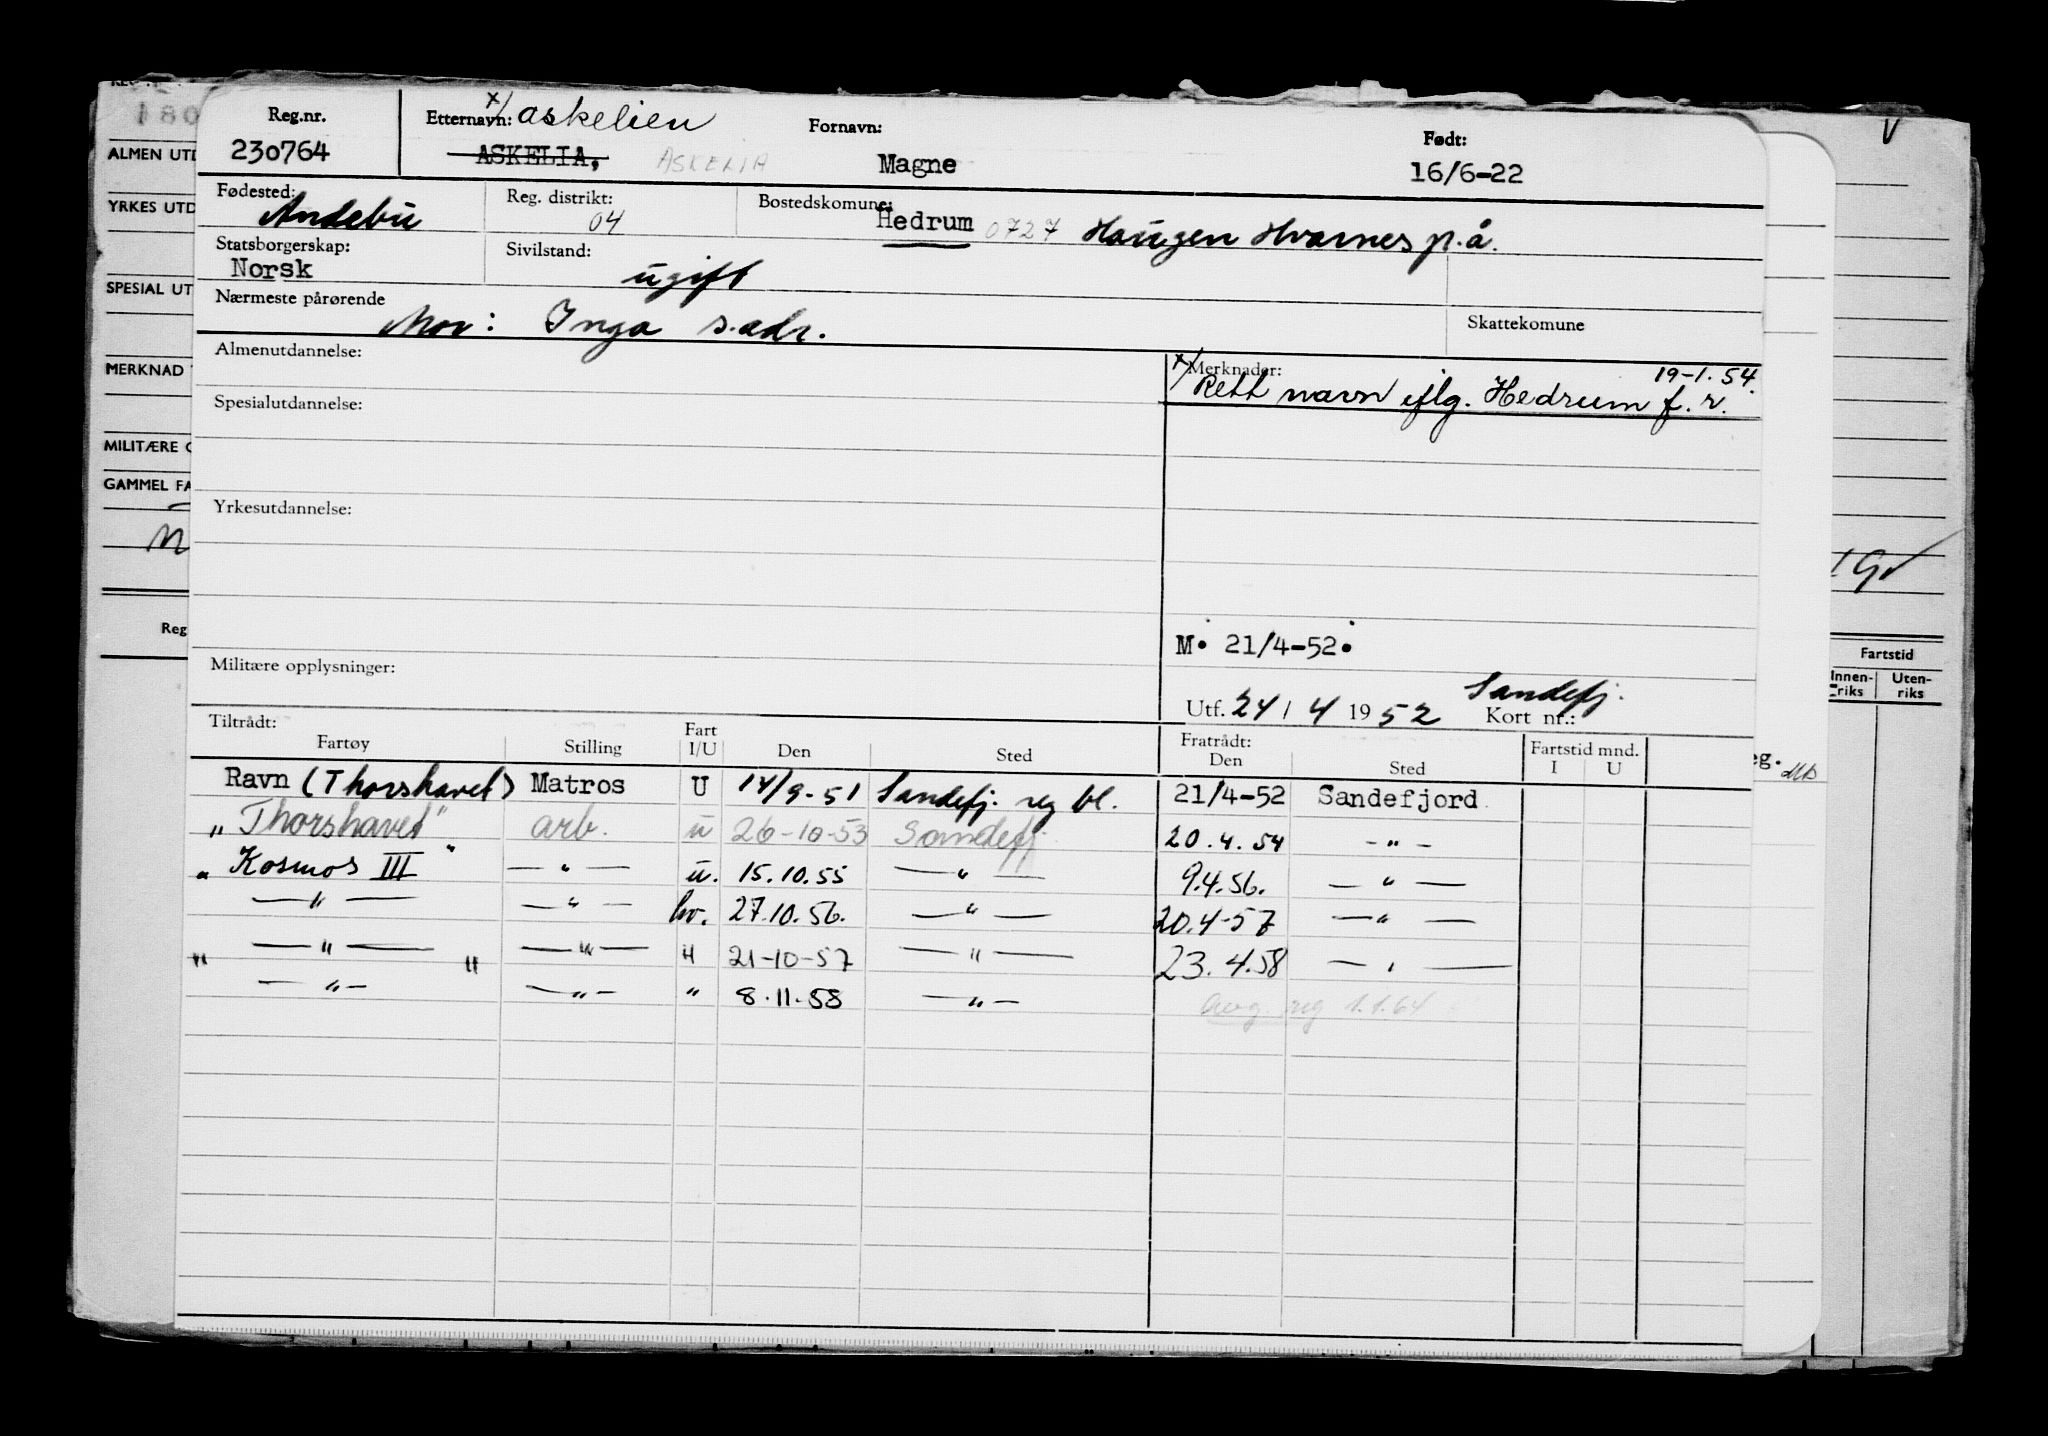 180
ALMEN UTD
YRKES UTD
SPECIAL UT
MERKNAD
MILITÆRE O
GAMMEL FA
Reg
V
Fartstid
Innen-riks Uten-riks
eg.
Reg.nr. x/ Etternavn: Askelien Fornavn: Født:
230764 ASKELIA, ASKELIA Magne 16/6-22
Fødested: Andebu Reg. distrikt: 04 Bostedskomune: Hedrum 0727 Haugen Hvarnes p.å.
Statsborgerskap: Norsk Sivilstand: ugift
Nærmeste pårørende Mor: Inga s.adr. Skattekomune
Almenutdannelse: x/ Merknader: 19-1.54.
Rett navn iflg. Hedrum f.r.
Spesialutdannelse:
Yrkesutdannelse:
M. 21/4-52.
Militære opplysninger:
Sandefj.
Utf. 24/4 1952 Kort nr.:
Tiltrådt: Fratrådt:
Fartøy Stilling Fart I/U Den Sted Den Sted Fartstid mnd. I U
Ravn (Thorshavet) Matros U 14/9-51 Sandefj. reg bl. 21/4-52 Sandefjord
"Thorshavet" arb. u 26-10-53 Sandefj. 20.4.54 - " -
"Kosmos III" — " — u. 15.10.55 — " — 9.4.56. — " —
— " — — " — hv. 27.10.56. — " — 20.4-57 — " —
" — " — " — " — " 21-10-57 — " — 23.4.58 — " —
— " — — " — " 8.11.58 — " — Avg. reg 1.1.64